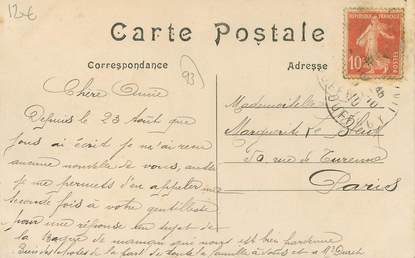 12€
Carte Postale
Correspondance
Adresse
93
RÉPUBLIQUE FRANÇAISE
10
POSTES
Chère Amie
Depuis le 23 Août que
vous ai écrit je n'ai reçu
aucune nouvelle de vous, aussi
je me permets d'en appeler une
seconde fois à votre gentillesse
pour une réponse au sujet de
la de maman qui nous est bien
de la part de toute la famille à vous et à
Mademoiselle
Marguerite Le
50, rue de Turenne
Paris